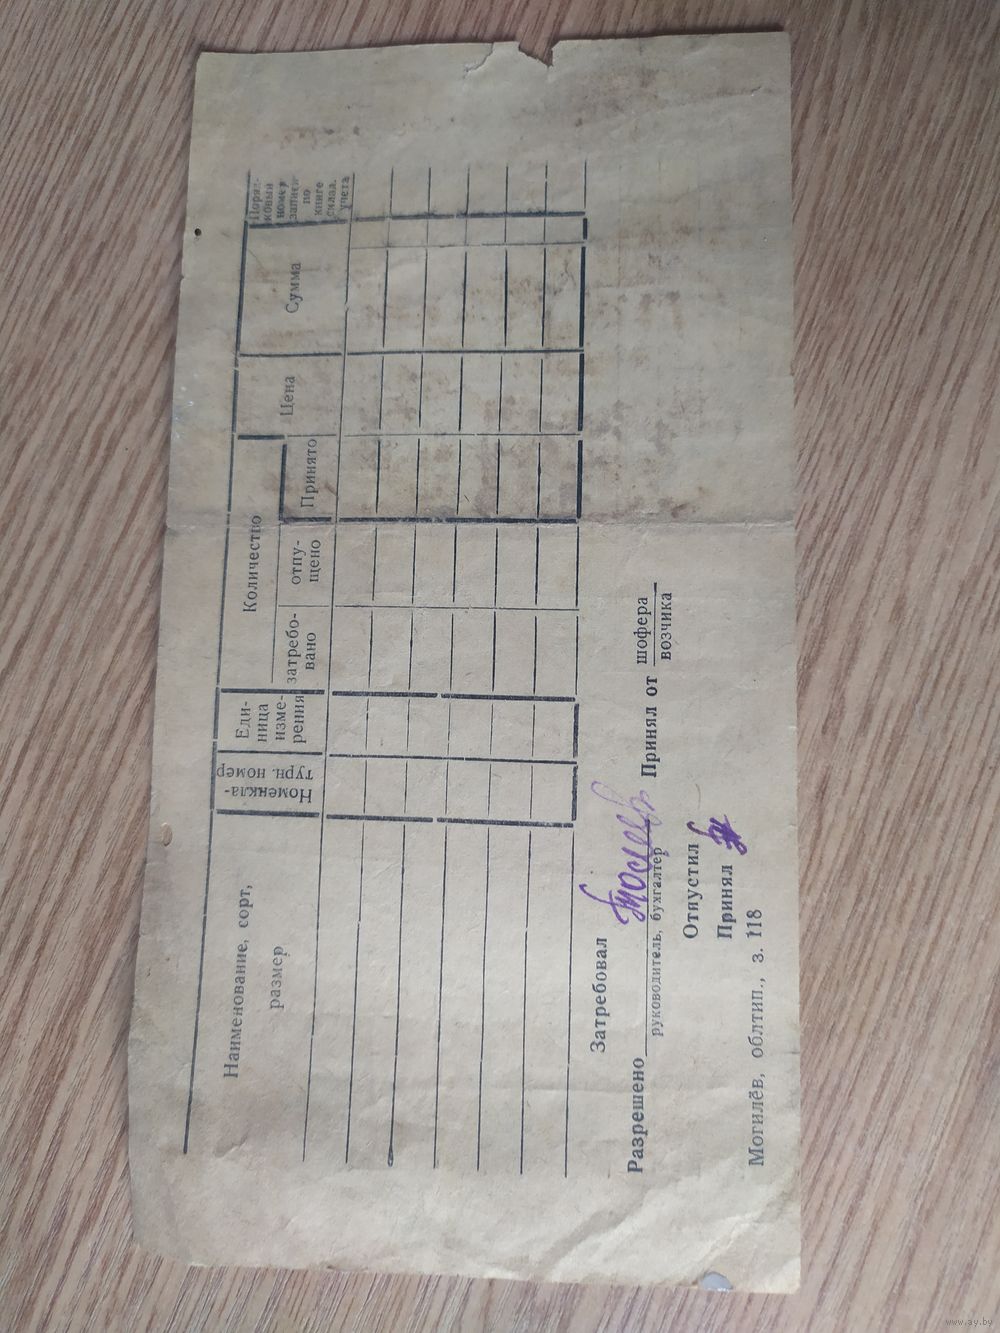 Наименование, сорт,
размер
Номенкла-
турн. номер
Еди-
ница
изме-
рения
Количество
затребо-
вано
отпу-
щено
Принято
Цена
Сумма
Поряд-
ковый
номер
записи
по
книге
склад.
учета
Затребовал
Разрешено
руководитель, бухгалтер
Принял от шофера
возчика
Отпустил
Принял
Могилёв, облтип., з. 118
www.ay.by